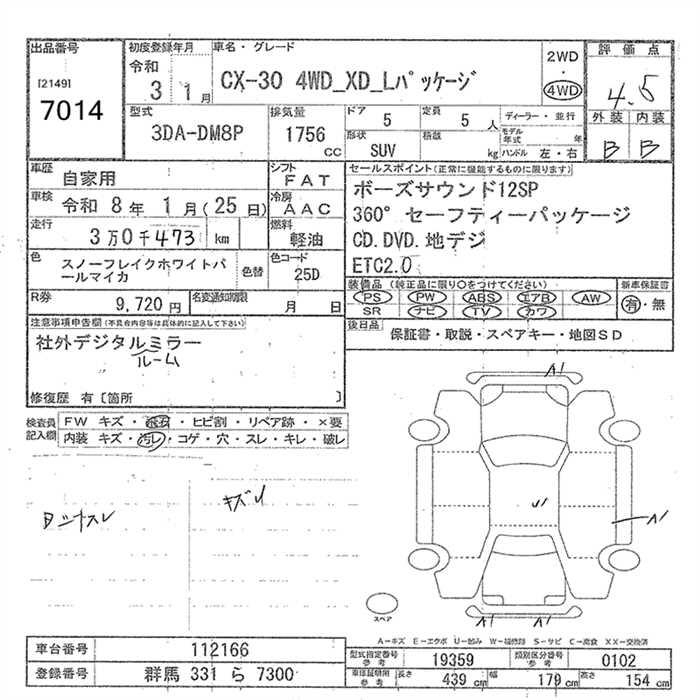 出品番号
[2149]
7014
初度登録年月
令和
3 1月
車名・グレード
CX-30 4WD_XD_Lパッケージ
2WD
・
4WD
評価点
4.5
外装 内装
B B
型式
3DA-DM8P
排気量
1756
CC
ドア
5
定員
5 人
形状
SUV
積載
kg
ディーラー・並行
モデル年式 年
ハンドル 左・右
車歴
自家用
シフト
FAT
車検
令和 8年 1月(25日)
冷房
AAC
走行
3万0千473 km
燃料
軽油
色
スノーフレイクホワイトパールマイカ
色替
色コード
25D
セールスポイント(正常に機能するものに限ります)
ボーズサウンド12SP
360° セーフティーパッケージ
CD.DVD.地デジ
ETC2.0
R券
9,720円
名変通知期限
月 日
装備品(純正品に限り○をつけてください)
PS PW ABS エアB AW
SR ナビ TV カワ
新車保証書
有・無
後日品
保証書・取説・スペアキー・地図SD
注意事項申告欄(不具合内容等は具体的に記入して下さい)
社外デジタルミラー
ルーム
修復歴 有〔箇所 〕
検査員記入欄
FW キズ・飛石・ヒビ割・リペア跡・×要
内装 キズ・汚レ・コゲ・穴・スレ・キレ・破レ
キズU
A1
U1
A1
A1 A1
スペア
A-キズ E-エクボ U-凹み W-補修跡 S-サビ C-腐食 XX-交換済
車台番号
112166
登録番号
群馬 331 ら 7300
型式指定番号
参考
19359
類別区分番号
参考
0102
車庫証明用
参考
長さ
439 cm
幅
179 cm
高さ
154 cm